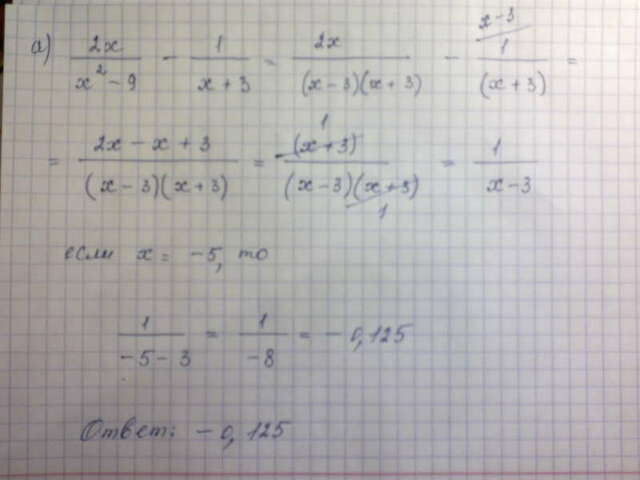 а) 2x / x² - 9 - 1 / x + 3 = 2x / (x - 3)(x + 3) - x-3 / 1 / (x + 3) =
= 2x - x + 3 / (x - 3)(x + 3) = 1 (x + 3) / (x - 3)(x + 3) 1 = 1 / x - 3
если x = -5, то
1 / -5 - 3 = 1 / -8 = - 0,125
Ответ: - 0,125